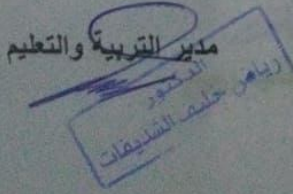 مدير التربية والتعليم
الدكتور
رياض خليف الشديفات